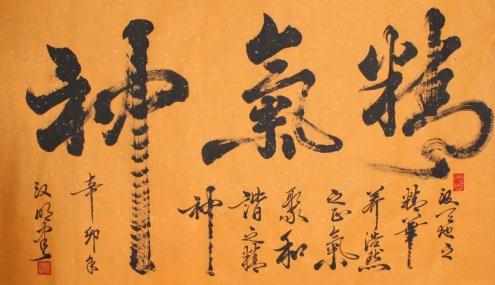 精氣神
天地之
精華
并浩然
之正氣
聚和
諧之精
神
辛卯年